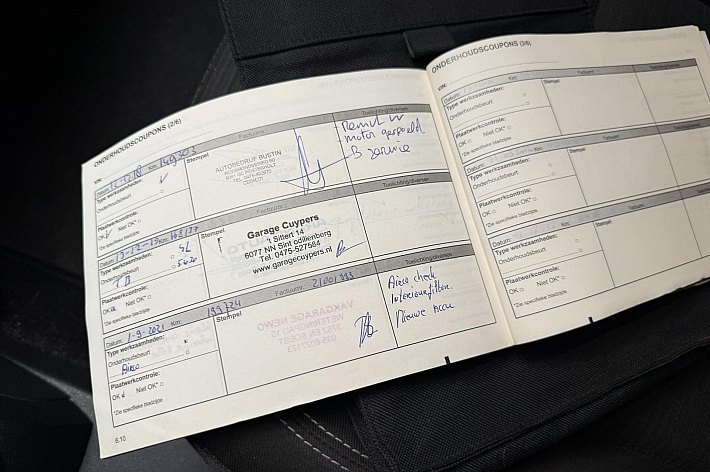 ONDERHOUDSCOUPONS (2/6)
VIN:
Datum: Km: 149303 Factuurnr.: Toelichting/diversen
Type werkzaamheden:
Onderhoudsbeurt
Plaatwerkcontrole:
OK Niet OK*
*Zie specifieke bladzijde
Stempel
AUTOBEDRIJF BUSTIN
motor gespoeld
B service
Datum: Km: Factuurnr.: Toelichting/diversen
Type werkzaamheden:
Onderhoudsbeurt
Plaatwerkcontrole:
OK Niet OK*
*Zie specifieke bladzijde
Stempel
Garage Cuypers
't Sittert 14
6077 NN Sint odilienberg
Tel. 0475-527584
www.garagecuypers.nl
Datum: 1-9-2021 Km: 199724 Factuurnr.: 21001393 Toelichting/diversen
Type werkzaamheden:
Onderhoudsbeurt
Airco
Plaatwerkcontrole:
OK Niet OK*
*Zie specifieke bladzijde
Stempel
VAKGARAGE NEWO
WETERINGPAD 10
3762 EN SOEST
Airco check
Interieurfilter.
Nieuwe accu
6.10
ONDERHOUDSCOUPONS (3/6)
VIN:
Datum: Km: Factuurnr. Toelichting/diversen
Type werkzaamheden:
Onderhoudsbeurt
Plaatwerkcontrole:
OK Niet OK*
*Zie specifieke bladzijde
Stempel
Type werkzaamheden:
Onderhoudsbeurt
Plaatwerkcontrole:
OK Niet OK*
*Zie specifieke bladzijde
Stempel
Type werkzaamheden:
Onderhoudsbeurt
Plaatwerkcontrole:
OK Niet OK*
*Zie specifieke bladzijde
Stempel